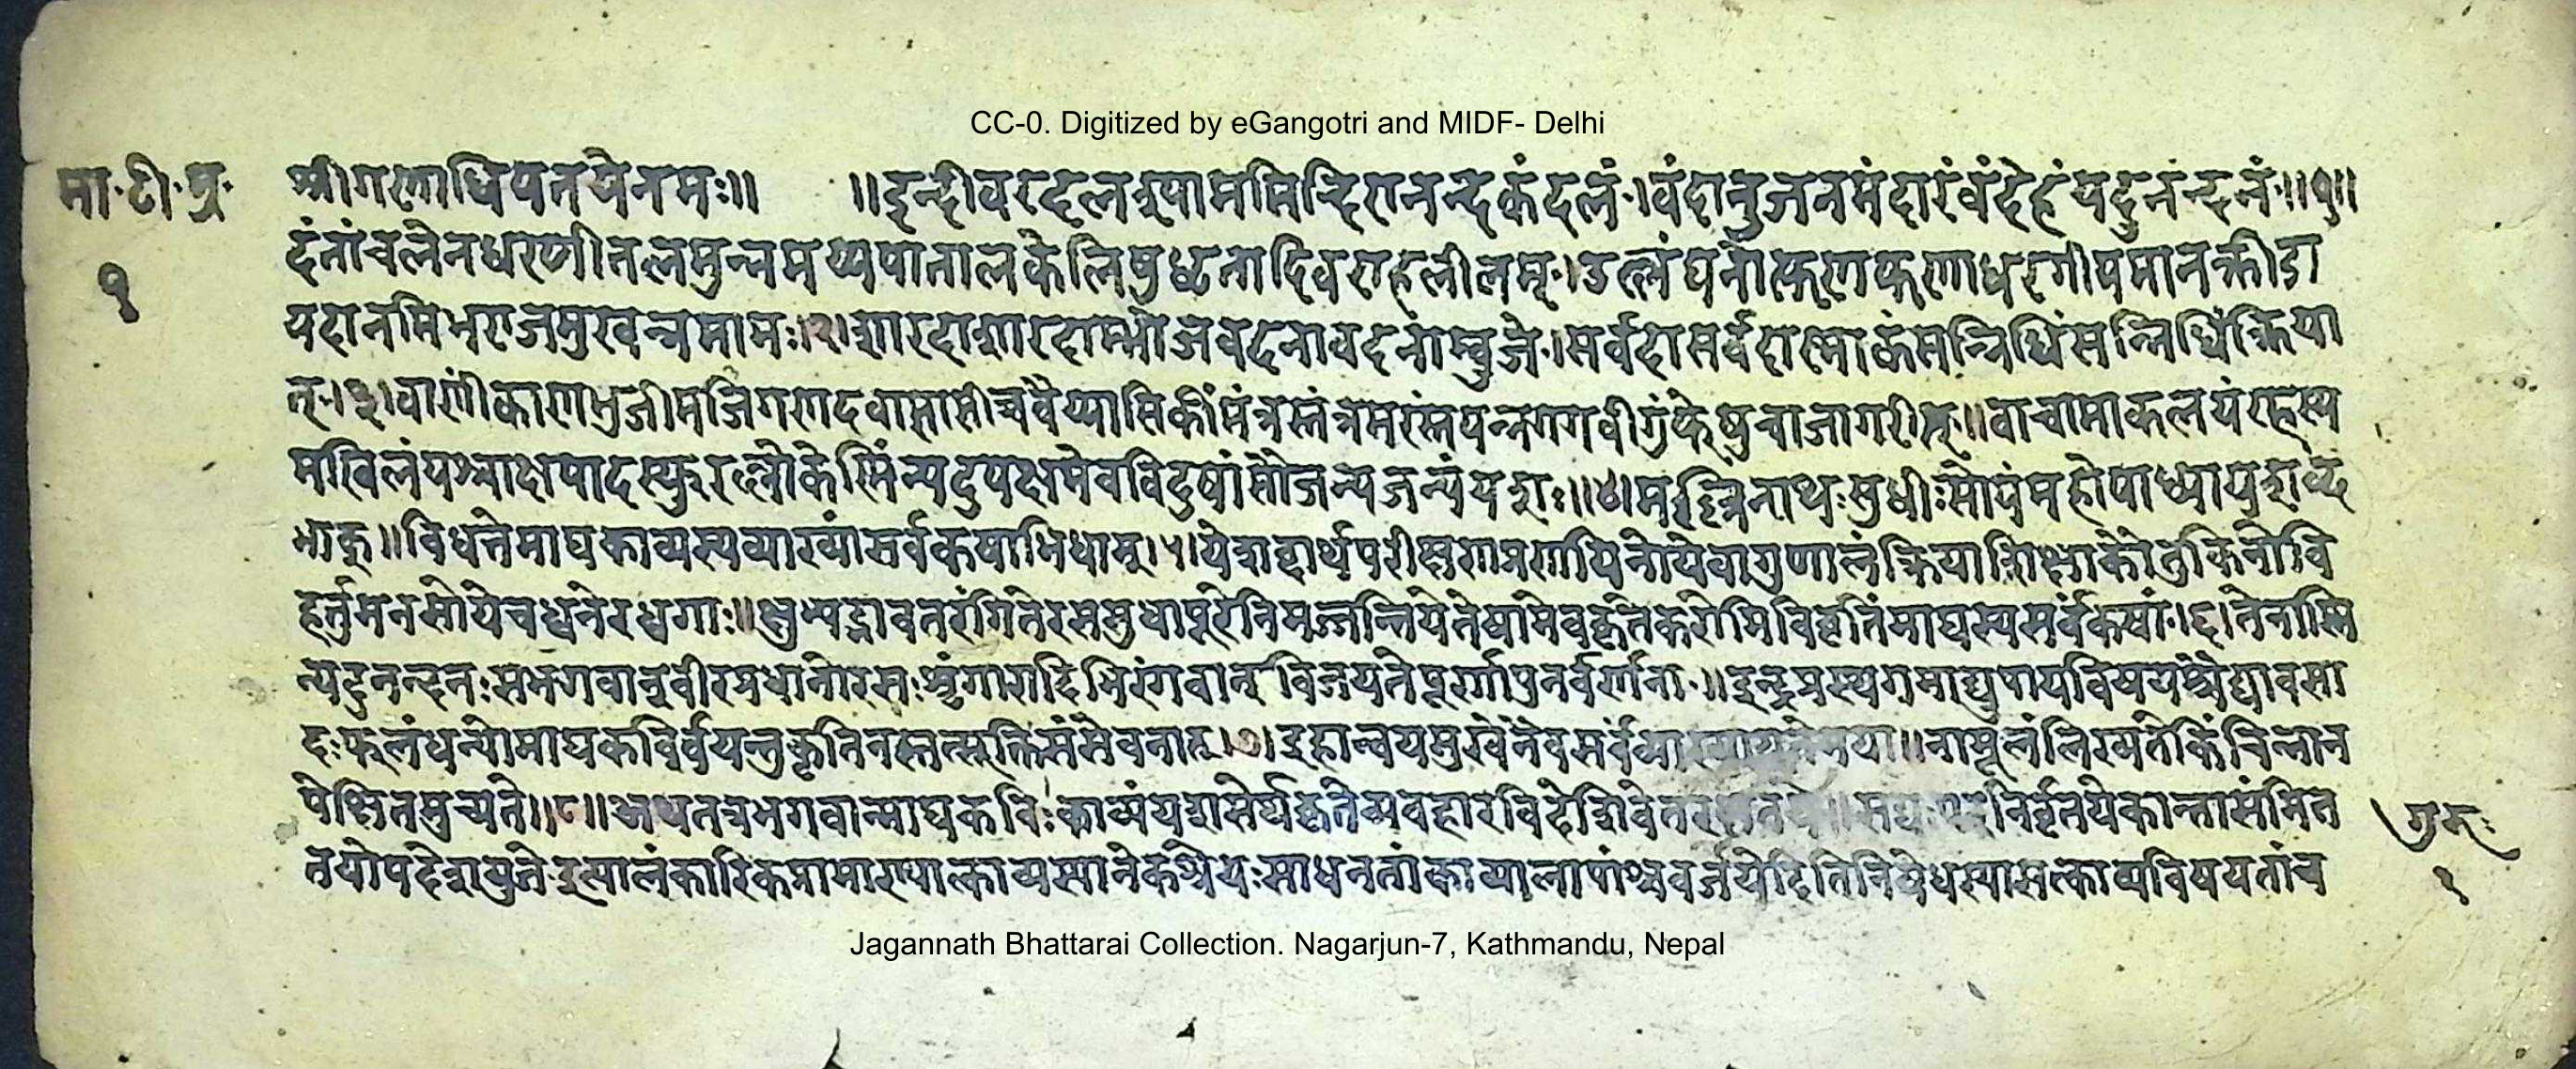 CC-0. Digitized by eGangotri and MIDF- Delhi
मा॰ टी॰ प्र॰
१
श्रीगणाधिपतयेनमः॥ ॥इन्दीवरदलश्याममिन्दिरानन्दकंदलं।वंदारुजनमंदारंवंदेहंयदुनंन्दनं॥१॥
दंतांचलेनधरणीतलमुन्नमय्यपातालकेलिषुधृतादिवराहलीलम्।उल्लंघनोत्फणफणाधरगीयमानक्रीडा
वदानमिभराजमुखन्नमामः।२।शारदाशारदाम्भोजवदनावदनांम्बुजे।सर्वदासर्वदास्माकंसन्निधिंसन्निधिंक्रिया
त्।३।वाणींकाणभुजीमजिगणदवाशासीच्चवैय्यासिकींमंत्रस्तंत्रमरंस्तपन्नगगवीगुंफेषुचाजागरीत्॥वाचामाकलयंरहस्य
मखिलंयश्चाक्षपादस्फुरल्लोकेस्मिंन्यदुपज्ञमेवविदुषांसौजन्यजन्यंयशः॥४।मल्लिनाथःसुधीःसोयंमहोपाध्यायशब्द
भाक्॥विधत्तेमाघकाव्यस्यव्याख्यांसर्वंकषाभिधाम्।५।येशब्दार्थपरीक्षणप्रणयिनोयेवागुणालंक्रियाशिक्षाकौतुकिनोवि
हर्तुमनसोयेचध्वनेरध्वगाः॥क्षुभ्यद्भावतरंगितेरससुधापूरेनिमज्जन्तियेतेषामेवकृतेकरोमिविवृतिंमाघस्यसर्वंकषां।६।नेतास्मि
न्यदुनन्दनःसभगवान्वीरप्रधानोरसःश्रृंगारादिभिरंगवान्विजयतेपूर्णापुनर्वर्णना॥इन्द्रप्रस्थगमाद्युपायविषयश्चैद्यावसा
दःफलंधन्योमाघकविर्वयन्तुकृतिनस्तत्सूक्तिसंसेवनात्।७।इहान्वयमुखेनैवसर्वंव्याख्यायतेमया॥नामूलंलिख्यतेकिंचिन्नान
पेक्षितमुच्यते॥८॥अथतत्रभगवान्माघकविःकाव्यंयशसेर्थकृतेव्यवहारविदेशिवेतरक्षतये॥सद्यःपरनिर्वृतयेकान्तासंमित
तयोपदेशयुजेइत्यालंकारिकप्रामाण्यात्काव्यस्यानेकश्रेयःसाधनतांकाव्यालापांश्चवर्जयेदितिनिषेधस्यासत्काव्यविषयतांच
गुरुः
१
Jagannath Bhattarai Collection. Nagarjun-7, Kathmandu, Nepal